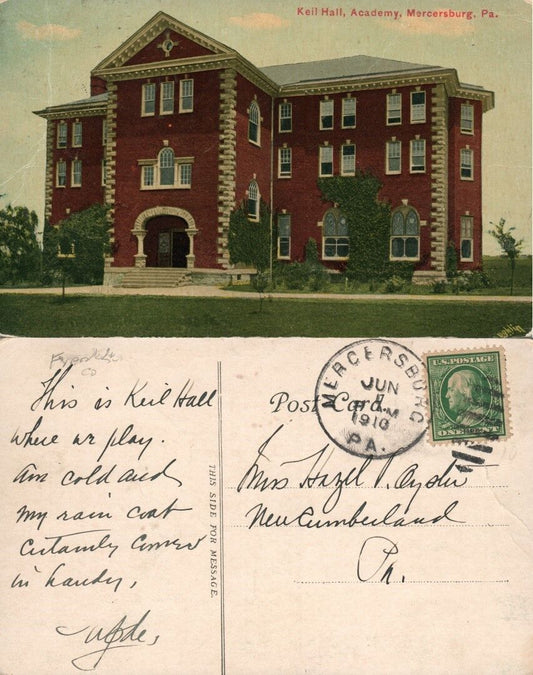 Keil Hall, Academy, Mercersburg, Pa.
This is Keil Hall
where we play.
Am cold and
my rain coat
certainly comes
in handy,
THIS SIDE FOR MESSAGE.
Post Card.
MERCERSBURG
JUN
7
M
1910
PA.
U.S. POSTAGE
ONE CENT
Miss Hazel P. Oyster
New Cumberland
Pa.